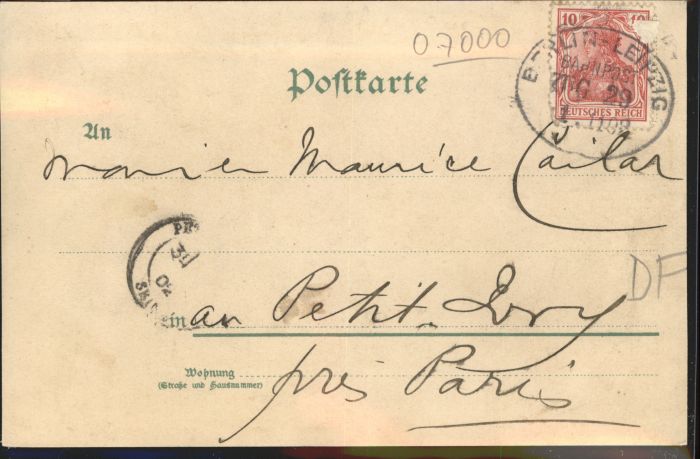 07000
10 10
DEUTSCHES REICH
BERLIN-LEIPZIG
BAHNPOST
ZUG 29
Postkarte
An
Monsieur Maurice
DF
31
02
in au Petit-Ivry
Wohnung
(Straße und Hausnummer)
près Paris